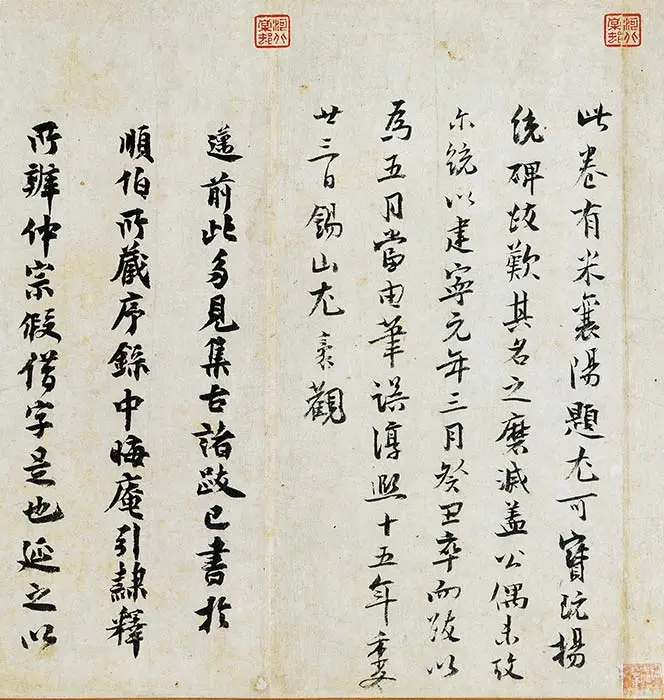 此卷有米襄陽題尤可寶玩揚
統碑跋歎其名之磨滅蓋公偶未攷
尓統以建寧元年三月癸丑卒而跋以
為五月當由筆誤淳熙十五年
廿三日錫山尤袤觀
邁前此多見集古諸跋已書於
順伯所藏序錄中晦庵引隸釋
所辯仲宗假借字是也延之以